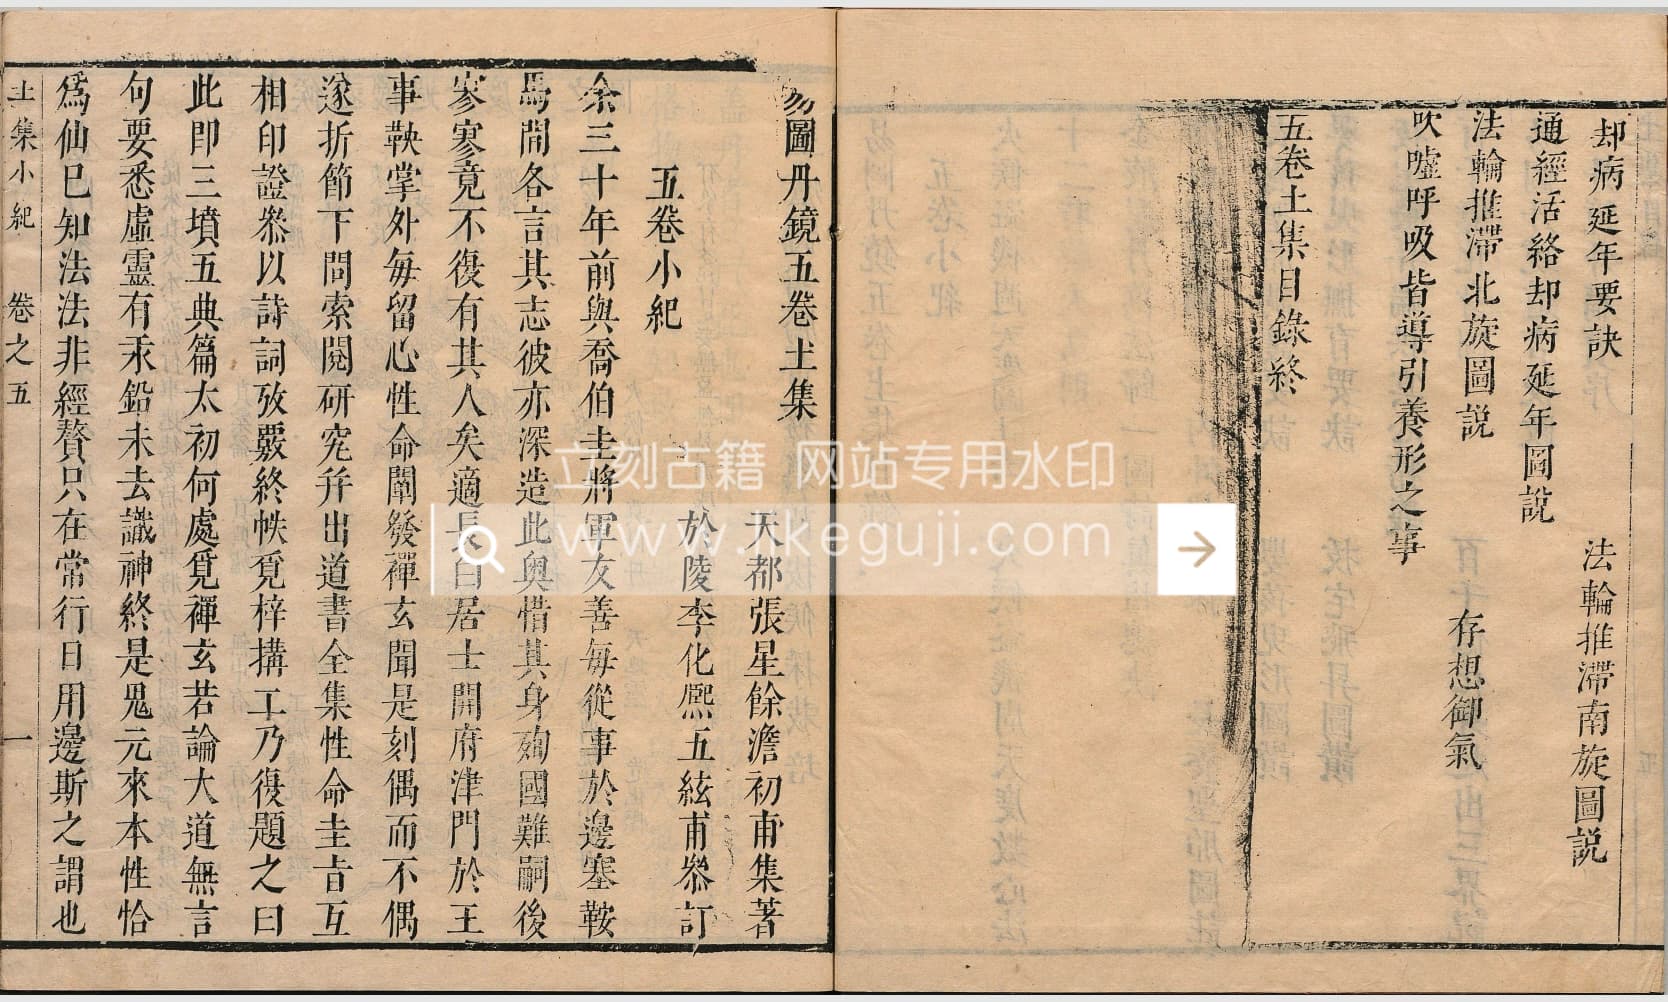 却病延年要訣
法輪推滯南旋圖説
通經活絡却病延年圖説
法輪推滯北旋圖説
存想御氣
吹噓呼吸皆導引養形之事
五卷土集目錄終
易圖丹鏡五卷土集
天都張星餘澹初甫集著
於陵李化熙五絃甫叅訂
五卷小紀
余三十年前與喬伯圭將軍友善每從事於邊塞鞍
馬間各言其志彼亦深造此奥惜其身殉國難嗣後
寥寥竟不復有其人矣適長白居士開府津門於王
事鞅掌外每留心性命闡發禪玄聞是刻偶而不偶
遂折節下問索閱研究并出道書全集性命圭旨互
相印證叅以詩詞攷覈終帙覓梓搆工乃復題之曰
此即三墳五典篇太初何處覓禪玄若論大道無言
句要悉虛靈有汞鉛未去識神終是鬼元來本性恰
爲仙已知法法非經贅只在常行日用邊斯之謂也
土集小紀 卷之五 一
立刻古籍 网站专用水印
www.rkeguji.com